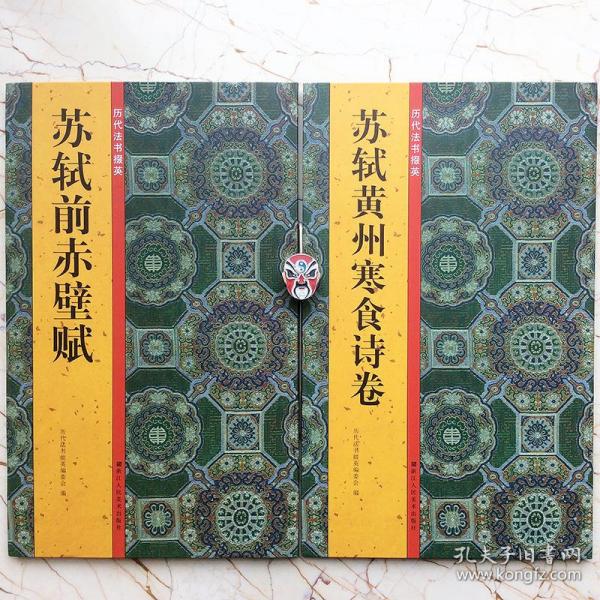 苏轼前赤壁赋
历代法书掇英
历代法书掇英编委会 编
浙江人民美术出版社
苏轼黄州寒食诗卷
历代法书掇英
历代法书掇英编委会 编
浙江人民美术出版社
孔夫子旧书网
www.kongfz.com